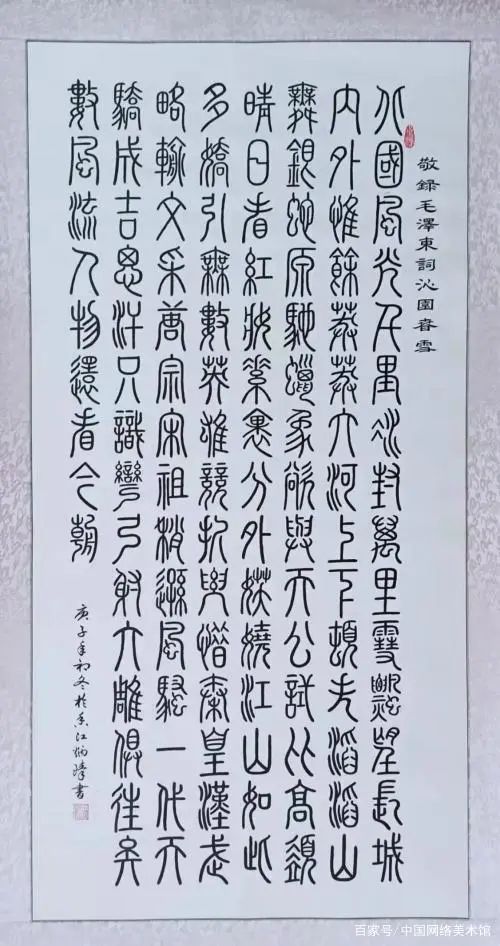 敬録毛澤東詞沁園春雪
北國風光千里冰封萬里雪飄望長城
内外惟餘莽莽大河上下頓失滔滔山
舞銀蛇原馳蠟象欲與天公試比高須
晴日看紅妝素裹分外妖嬈江山如此
多嬌引無數英雄競折腰惜秦皇漢武
略輸文采唐宗宋祖稍遜風騷一代天
驕成吉思汗只識彎弓射大雕俱往矣
數風流人物還看今朝
庚子年初冬於香江炳璋書
百家号/中国网络美术馆